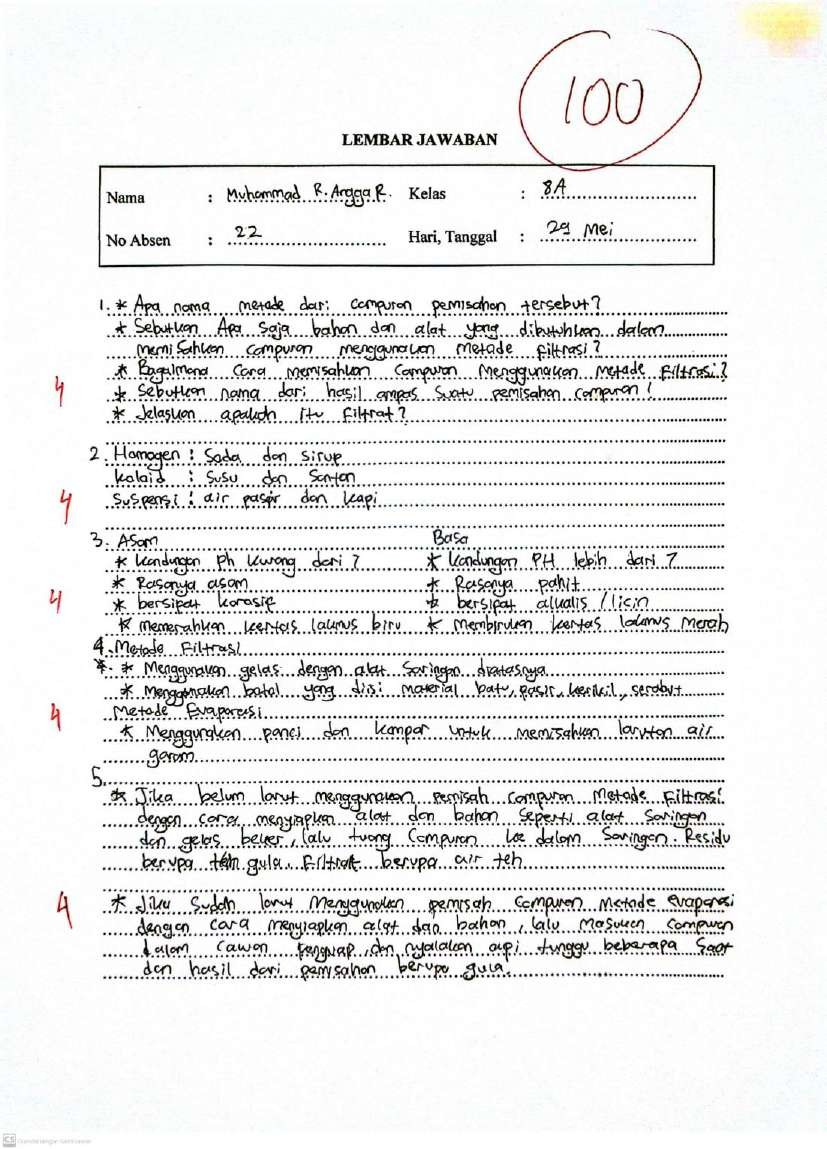 100
LEMBAR JAWABAN
Nama : Muhammad R. Angga R. Kelas : 8A
No Absen : 22 Hari, Tanggal : 29 Mei
1. * Apa nama metode dari campuran pemisahan tersebut?
* Sebutkan Apa saja bahan dan alat yang dibutuhkan dalam
memisahkan campuran menggunakan metode filtrasi?
* Bagaimana Cara memisahkan Campuran Menggunakan metode Filtrasi?
4 * Sebutkan nama dari hasil ampas suatu pemisahan campuran!
* Jelaskan apakah itu Filtrat?
2. Homogen : Soda dan sirup
koloid : Susu dan Santan
4 Suspensi : air pasir dan kopi
3. Asam Basa
* kandungan Ph kurang dari 7 * kandungan PH lebih dari 7
* Rasanya asam * Rasanya pahit
4 * bersipat korosif * bersipat alkalis / licin
* memerahkan kertas lakmus biru * Membirukan kertas lakmus Merah
4. Metode Filtrasi
* * Menggunakan gelas dengan alat Saringan diatasnya
* Menggunakan botol yang diisi material batu, pasir, kerikil, serabut
4 Metode Evaporasi
* Menggunakan panci dan kompor untuk memisahkan larutan air
garam
5.
* Jika belum larut menggunakan pemisah campuran Metode Filtrasi
dengan cara menyiapkan alat dan bahan Seperti alat Saringan
dan gelas beker, lalu tuang Campuran ke dalam Saringan. Residu
berupa teh gula. Filtrat berupa air teh
4 * Jika Sudah larut Menggunakan pemisah Campuran Metode evaporasi
dengan cara menyiapkan alat dan bahan, lalu Masukan Campuran
dalam cawan penguap, dan nyalakan api tunggu beberapa Saat
dan hasil dari pemisahan berupa gula.
CS